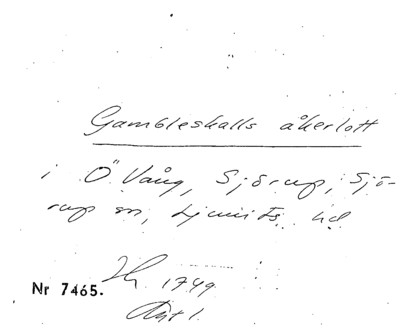 Gambleskalls åkerlott
i Ö Vång, Sjörup, Sjö-
rup sn, Ljunits hd
Nr 7465. 1749.
Akt 1.